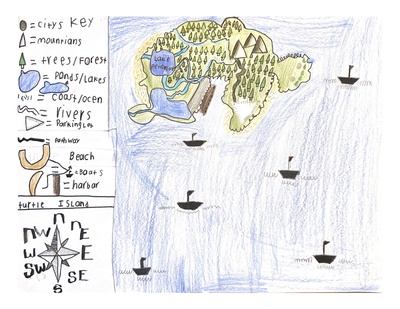 = citys Key
= mountians
= trees/Forest
= Ponds/Lakes
= coast/ocen
= rivers
= Parking Lot
= Pathway
Beach
= Boats
= harbor
turtle Island
n
nW nE
W E
SW SE
S
Lake